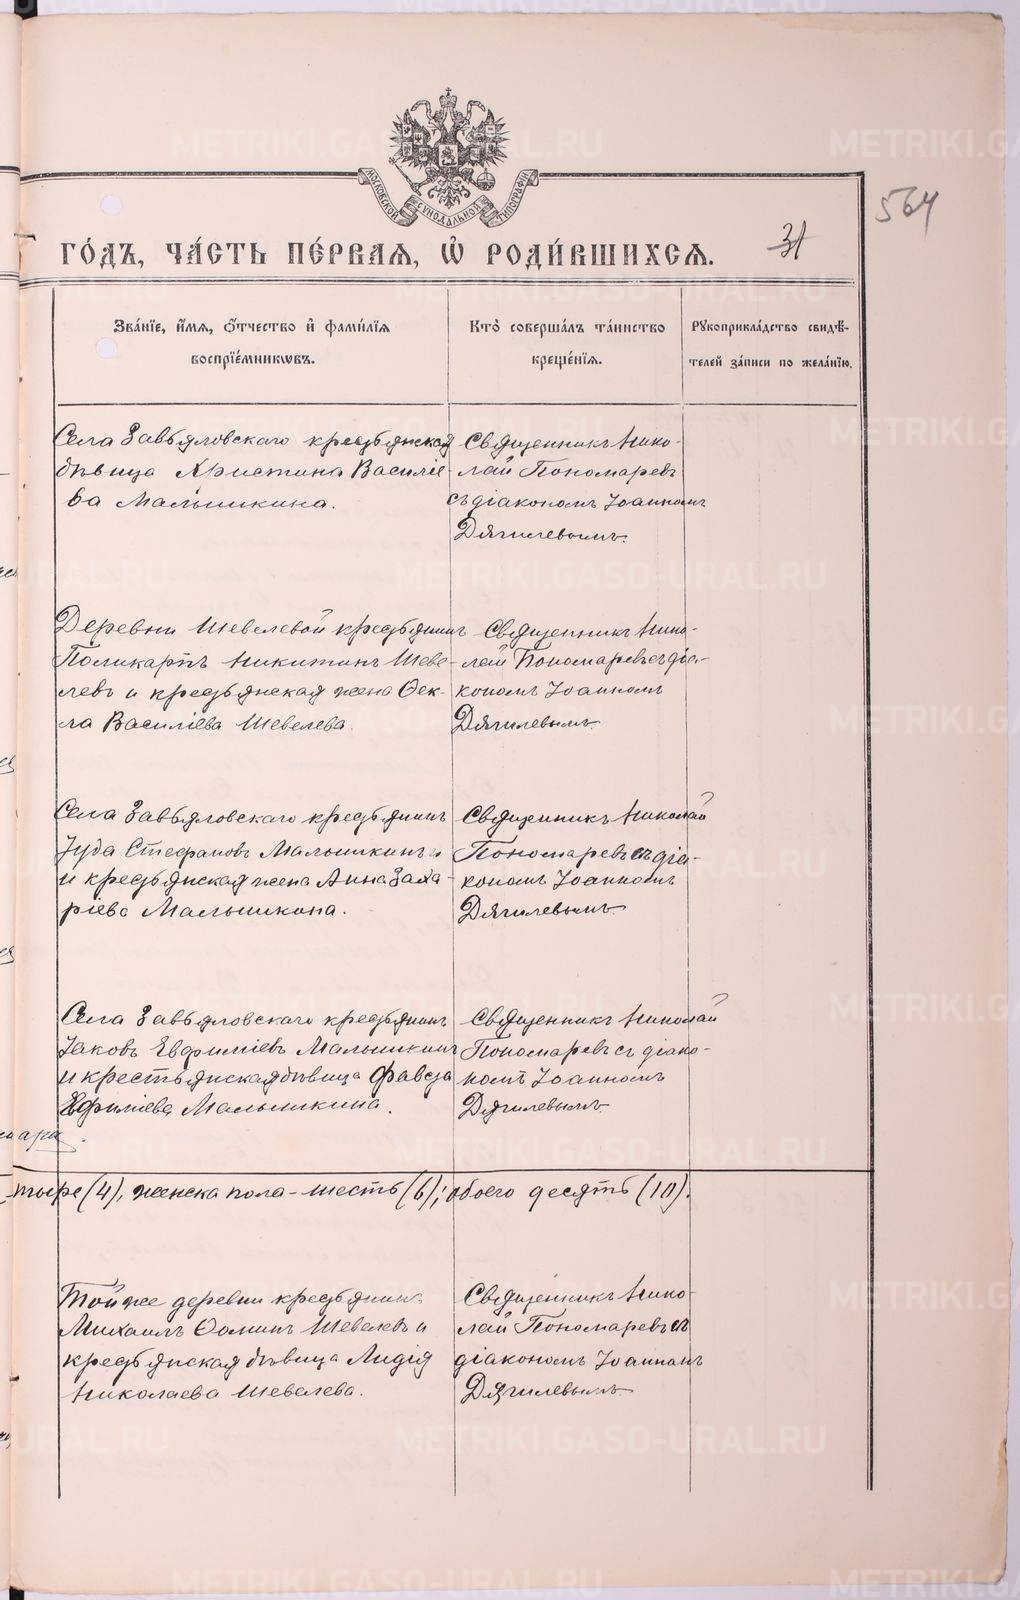 МОСКОВСКОЙ СѴНОДАЛЬНОЙ ТИПОГРАФІИ
564
ГО́ДЪ, ЧА́СТЬ ПЕ́РВАЯ, Ѡ҆ РОДИ́ВШИХСЯ.
31
Зва́нїе, и҆́мѧ, ѻ҆́тчество и҆ фами́лїѧ
воспрїе́мникѡвъ.
Кто̀ соверша́лъ та́инство
креще́нїѧ.
Рꙋкоприкла́дство свидѣ́-
телей за́писи по жела́нїю.
Села Завьяловскаго крестьянская
дѣвица Христина Василіе-
ва Малышкина.
Священникъ Нико-
лай Пономаревъ
съ діакономъ Іоанномъ
Дягилевымъ.
Деревни Шевелевой крестьянинъ
Поликарпъ Никитинъ Шеве-
левъ и крестьянская жена Ѳек-
ла Василіева Шевелева.
Священникъ Нико-
лай Пономаревъ съ діа-
кономъ Іоанномъ
Дягилевымъ.
Села Завьяловскаго крестьянинъ
Іуда Стефановъ Малышкинъ и
и крестьянская жена Анна Заха-
ріева Малышкина.
Священникъ Николай
Пономаревъ съ діа-
кономъ Іоанномъ
Дягилевымъ
Села Завьяловскаго крестьянинъ
Іаковъ Евфиміевъ Малышкинъ
и крестьянская дѣвица Фавста
Ефиміева Малышкина.
Священникъ Николай
Пономаревъ съ діако-
номъ Іоанномъ
Дягилевымъ.
тыре (4), женска пола - шесть (6); обоего десять (10).
Той же деревни крестьянинъ
Михаилъ Ѳоминъ Шевелевъ и
крестьянская дѣвица Лидія
Николаева Шевелева.
Священникъ Нико-
лай Пономаревъ съ
діакономъ Іоанномъ
Дягилевымъ
METRIKI.GASO-URAL.RU